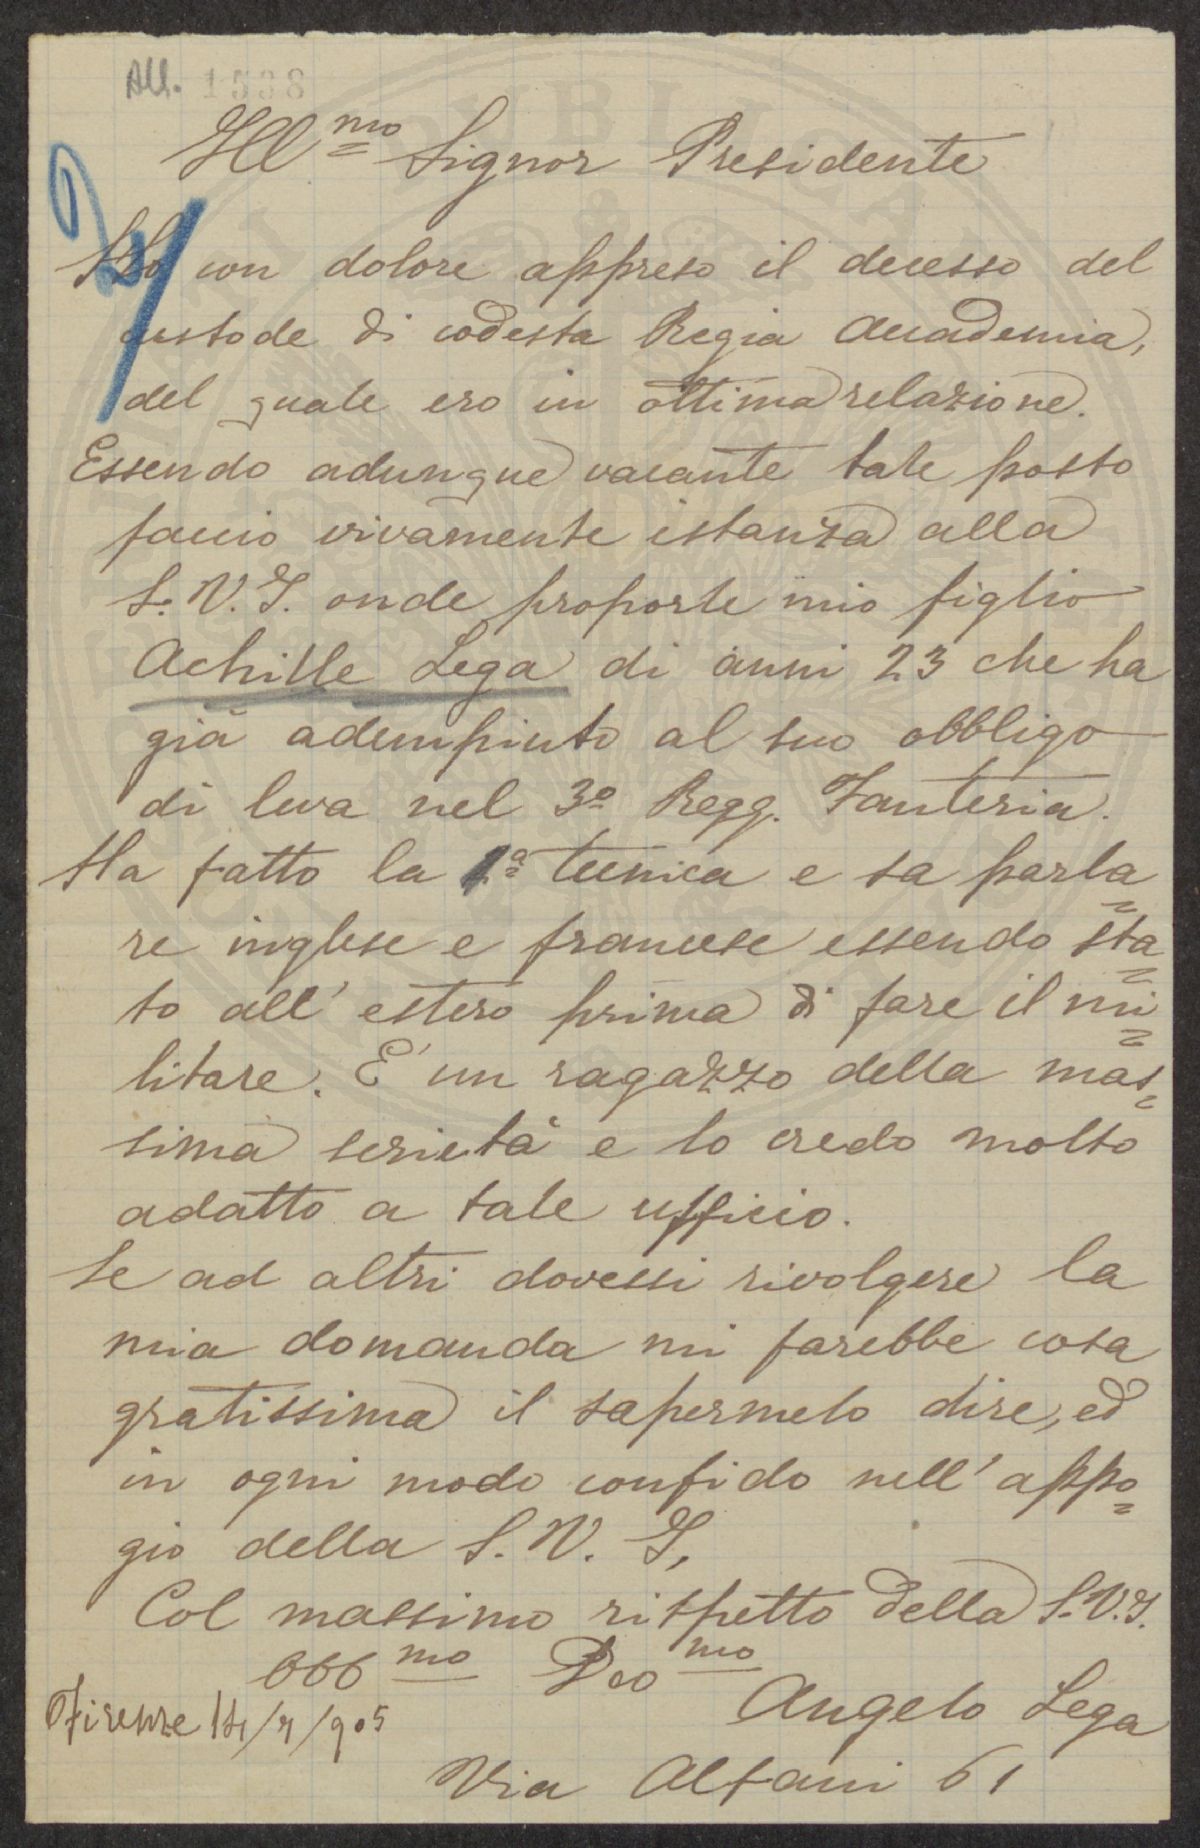 All. 1538
Ill.mo Signor Presidente
Ho con dolore appreso il decesso del
custode di codesta Regia Accademia,
del quale ero in ottima relazione.
Essendo adunque vacante tale posto
faccio vivamente istanza alla
S. V. I. onde proporle mio figlio
Achille Lega di anni 23 che ha
già adempiuto al suo obbligo
di leva nel 3º Regg. Fanteria.
Ha fatto la 1ª tecnica e sa parla=
re inglese e francese essendo sta=
to all'estero prima di fare il mi=
litare. È un ragazzo della mas=
sima serietà e lo credo molto
adatto a tale ufficio.
Se ad altri dovessi rivolgere la
mia domanda mi farebbe cosa
gratissima il sapermelo dire, ed
in ogni modo confido nell'appo=
gio della S. V. I.
Col massimo rispetto della S. V. I.
Obb mo Deo mo
Angelo Lega
Firenze 14/7/905
Via Alfani 61